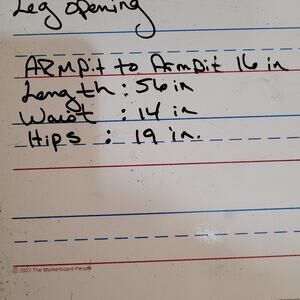 Leg opening
ARMPit to Armpit 16 in
Length : 56 in
Waist : 14 in
Hips : 19 in.
© 2003 The Markerboard People